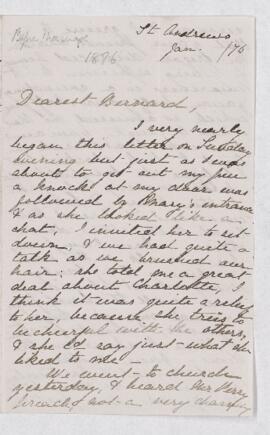 Before Marriage
1896
St Andrews
Jan. /96
Dearest Bernard,
I very nearly
began this letter on Sunday
evening but just as I was
about to get out my pen
a knock at my door was
followed by Mary's entrance
& as she looked like a
chat, I invited her to sit
down, & we had quite a
talk as we brushed our
hair; she told me a great
deal about Charlotte, I
think it was quite a relief
to her, because she tries to
be cheerful with the others,
& she c'd say just what she
liked to me —
We went to church
yesterday, & heard Mr
not a very